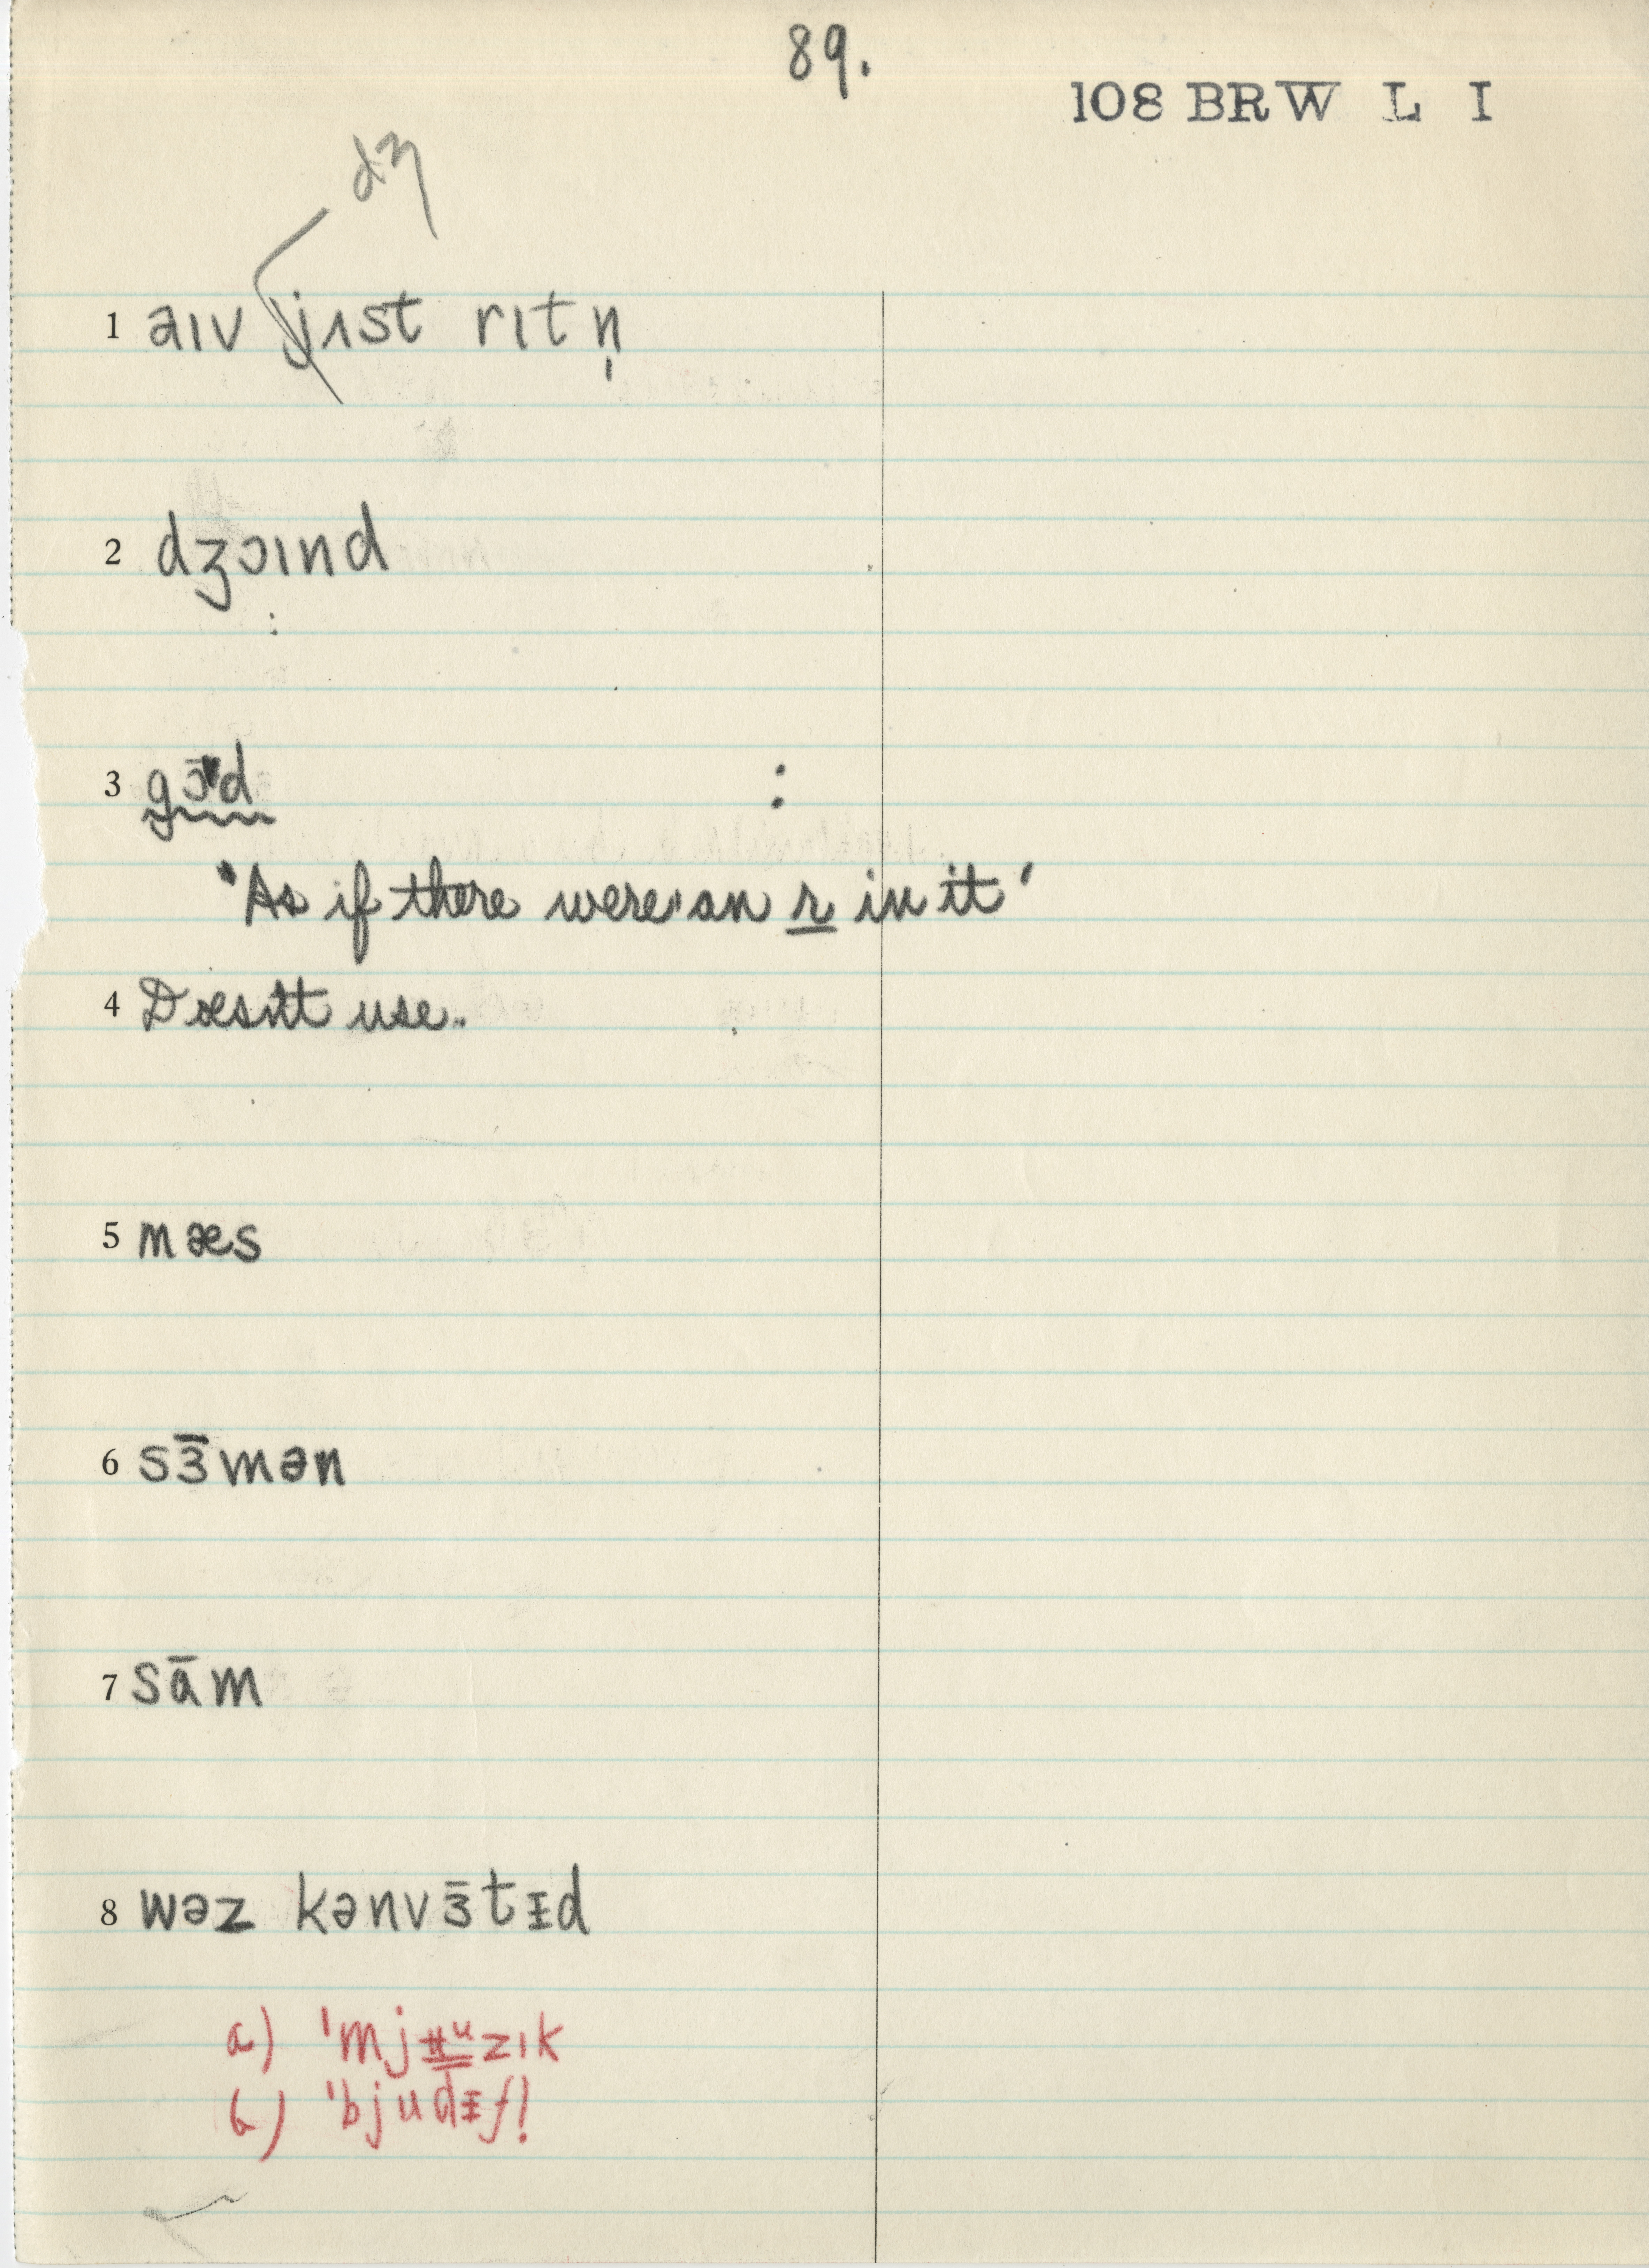 89.
108 BRW L I
dʒ
1 aɪv jɪst rɪtn̩
2 dʒɔɪnd
3 gɔ̄d :
"As if there were an r in it"
4 Doesn't use.
5 mæs
6 sɜ̄mən
7 sām
8 wəz kənvɜ̄tᵻd
a) 'mjʉᵘzɪk
b) 'bjudᵻfl̩